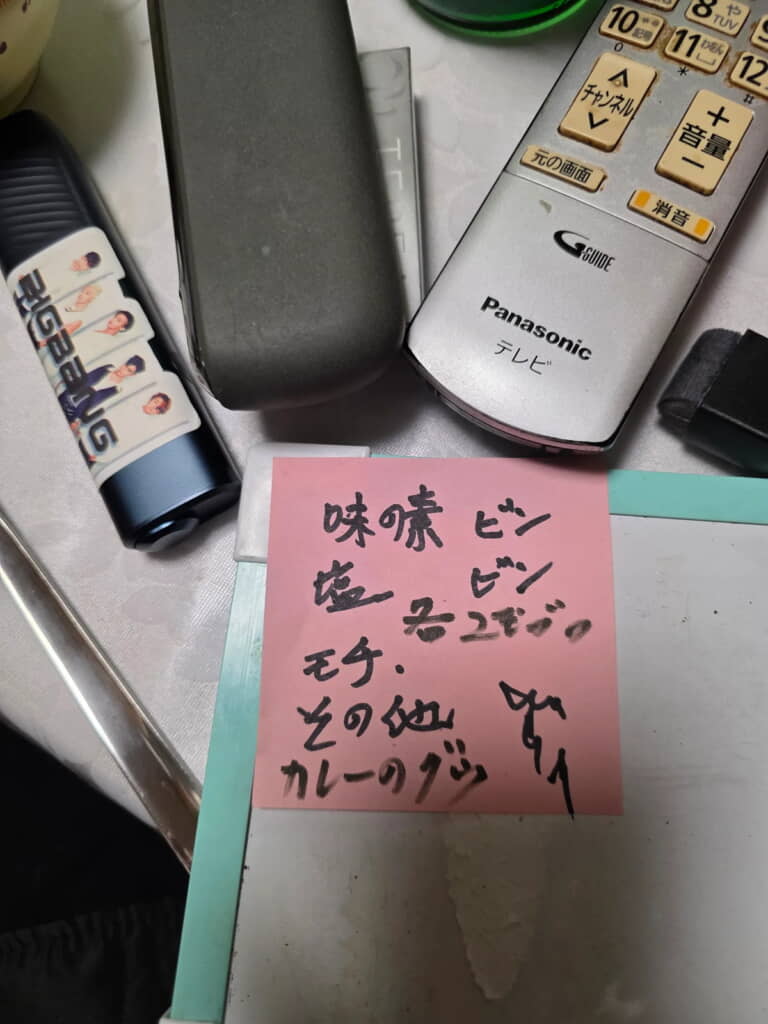 8 や
TUV
10 記号
0
11 わをん
*
12
#
チャンネル
+
音量
−
元の画面
消音
G GUIDE
Panasonic
テレビ
BIGBANG
味の素 ビン
塩 ビン
各2
モチ.
その他
カレーの